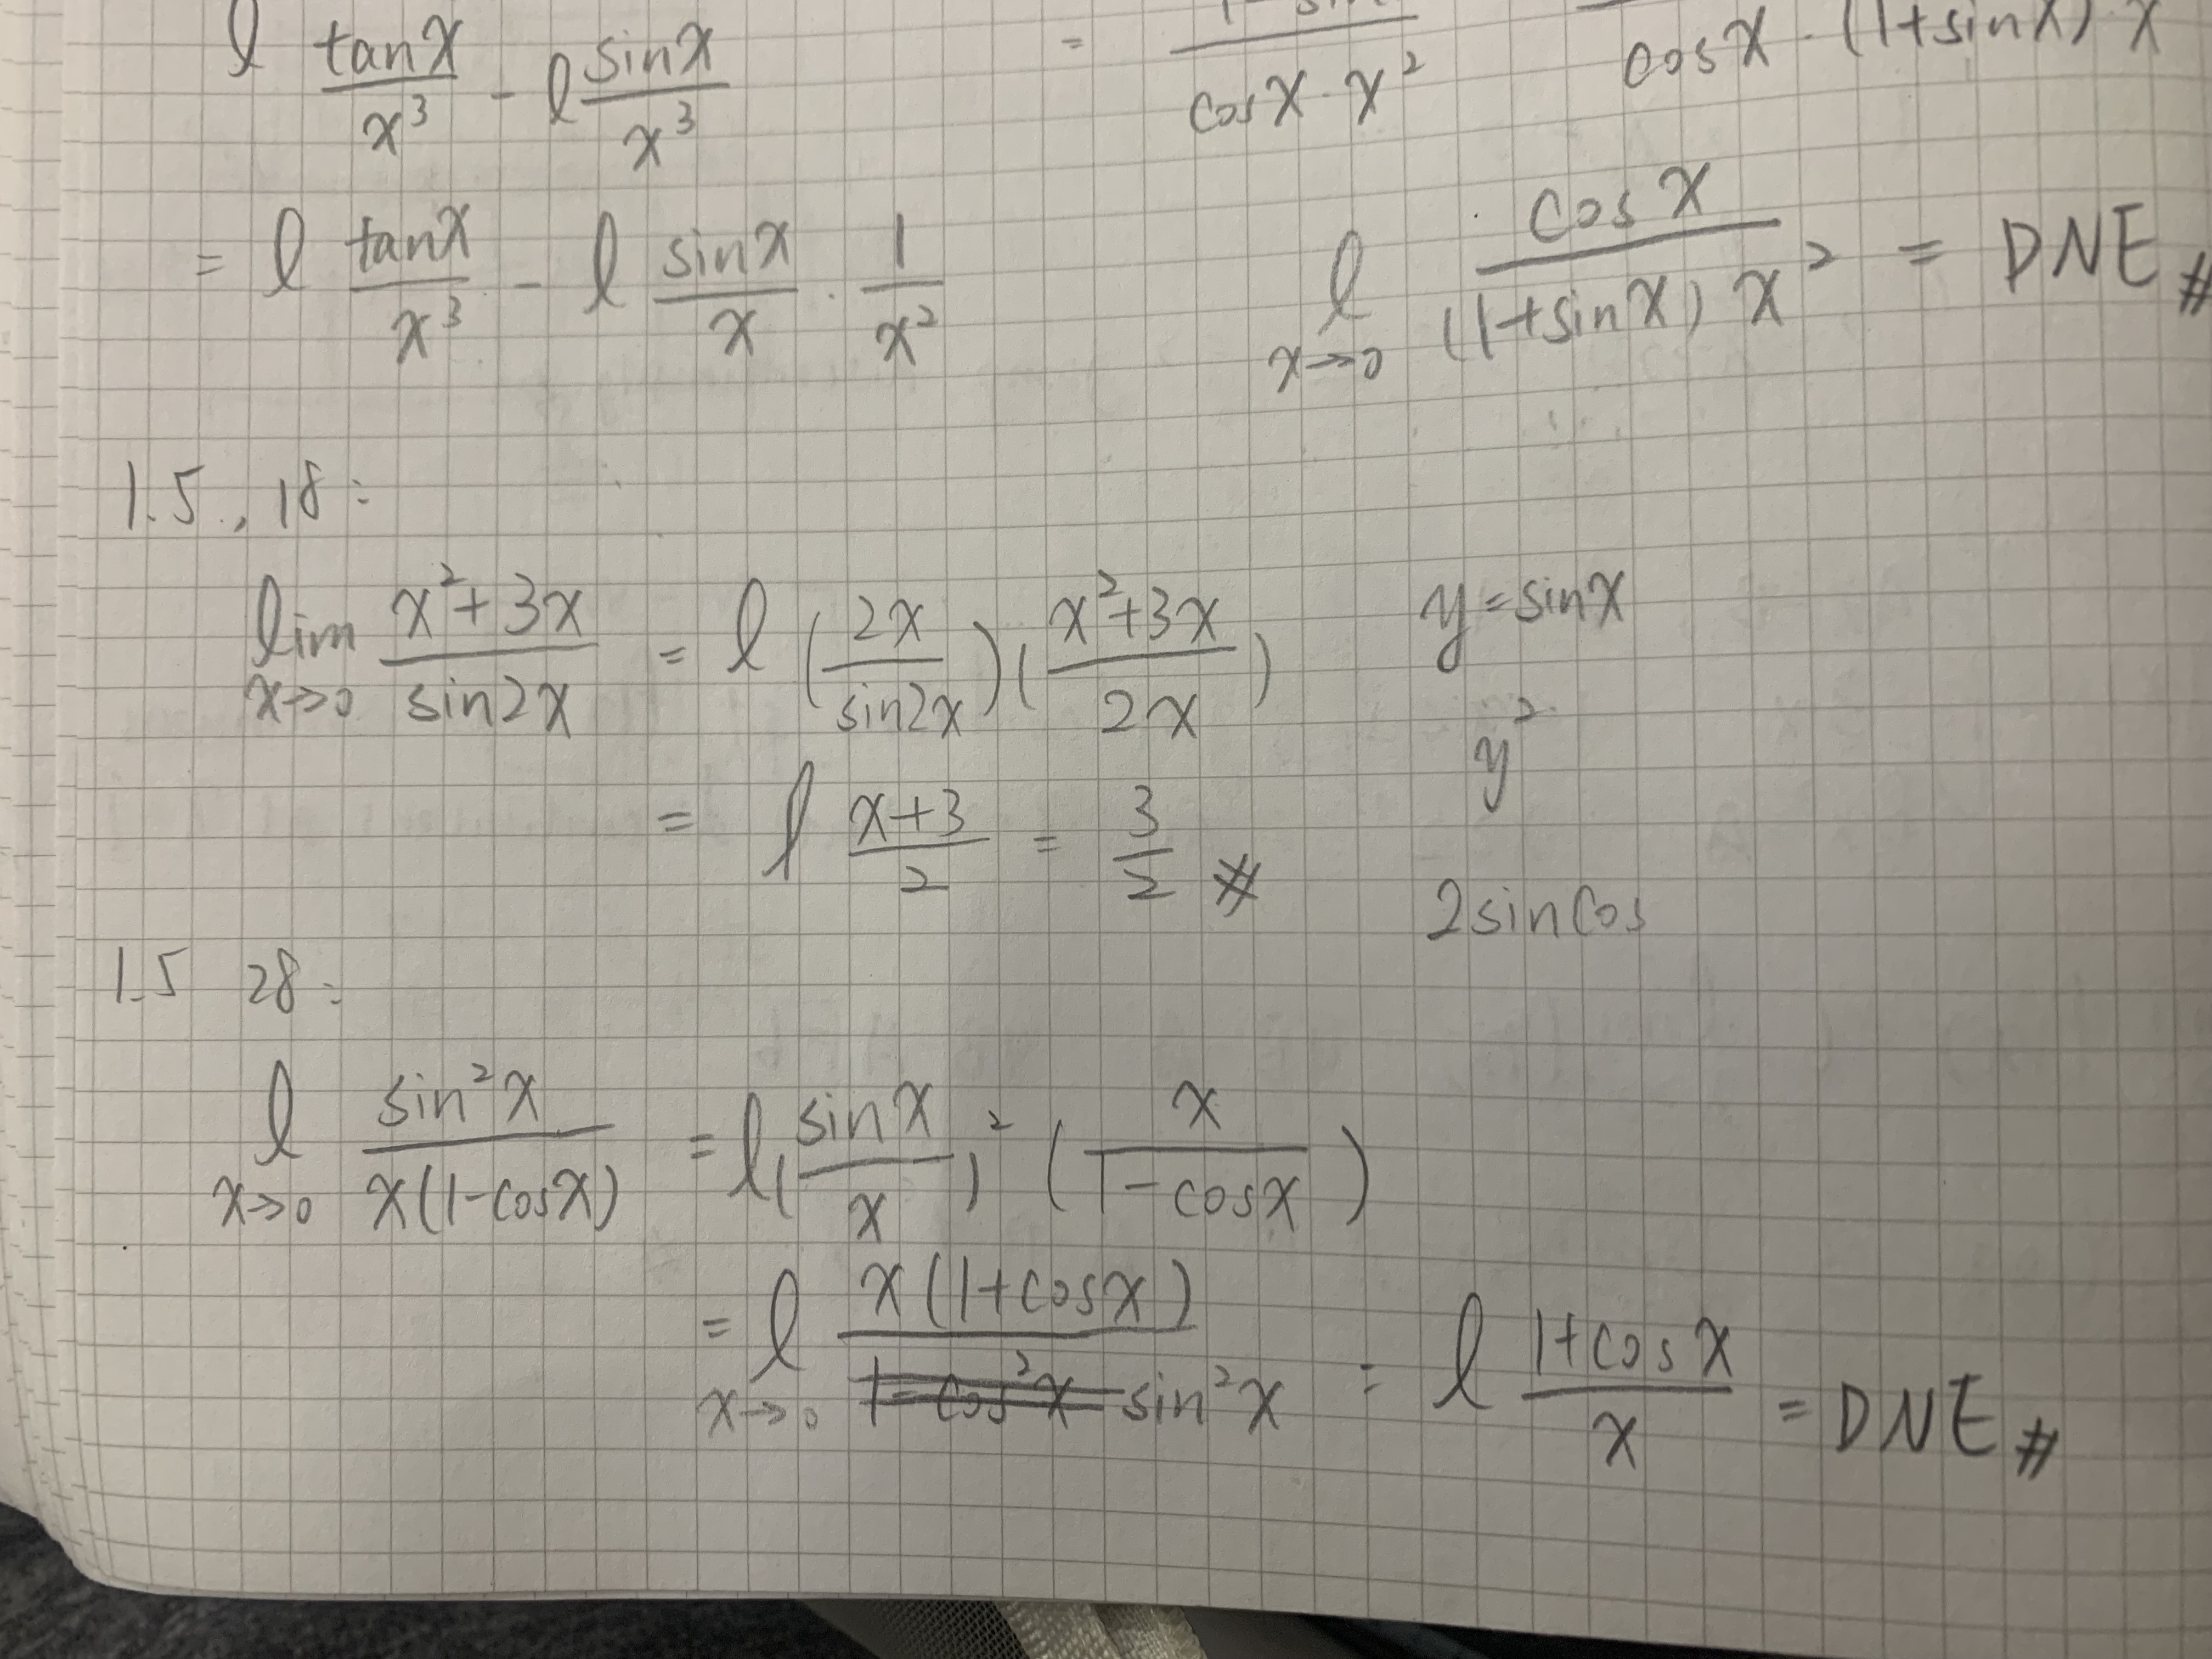 l tanx/x³ - l sinx/x³
= cosx·x² cosx·(1+sinx)·x
= l tanx/x³ - l sinx/x · 1/x²
l x→0 cosx/((1+sinx)x²) = DNE #
1.5. 18:
lim x→0 (x²+3x)/sin2x = l (2x/sin2x)((x²+3x)/2x)
y=sinx
= l (x+3)/2 = 3/2 #
y²
2sincos
1.5 28:
l x→0 sin²x/(x(1-cosx)) = l (sinx/x)² (x/(1-cosx))
= l x→0 x(1+cosx)/sin²x = l (1+cosx)/x = DNE #